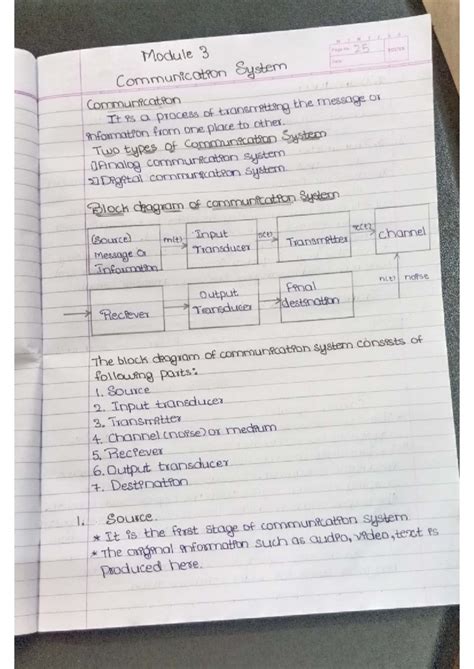 Module 3
Page No. 25
Date
Communication System
Communication
It is a process of transmitting the message or
information from one place to other.
Two types of communication System
1) Analog communication system
2) Digital communication system
Block diagram of communication System
(Source)
Message or
Information
m(t)
Input
Transducer
Transmitter
channel
n(t) noise
Reciever
Output
Transducer
Final
destination
The block diagram of communication system consists of
following parts:
1. Source
2. Input transducer
3. Transmitter
4. Channel (noise) or medium
5. Reciever
6. Output transducer
7. Destination
1. Source.
* It is the first stage of communication system
* The original information such as audio, video, text is
produced here.